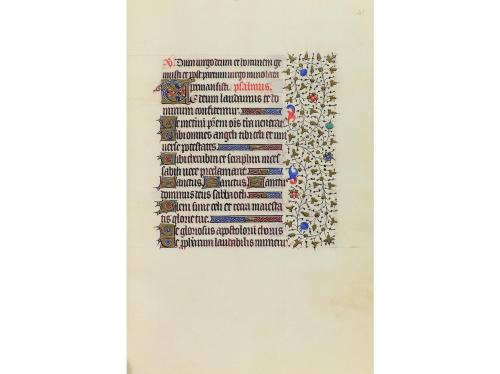 dum virgo deum et hominem ge
nuisti et post partum virgo inviolata
permansisti. psalmus.
Te deum laudamus te do
minum confitemur.
Te eternu prem ois tra veneratur
Tibi omnes angeli tibi celi et uni
verse potestates.
Tibi cherubin et seraphin inces
sabili voce proclamant.
Sanctus. Sanctus. Sanctus
dominus deus sabaoth.
Pleni sunt celi et terra maiesta
tis glorie tue.
Te gloriosus apostoloru chorus
Te prophetarum laudabilis numerus